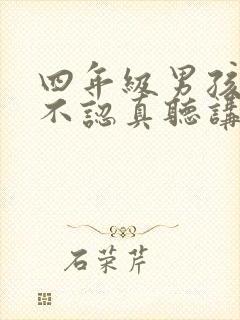 四年級男孩
不認真聽講
石荣芹